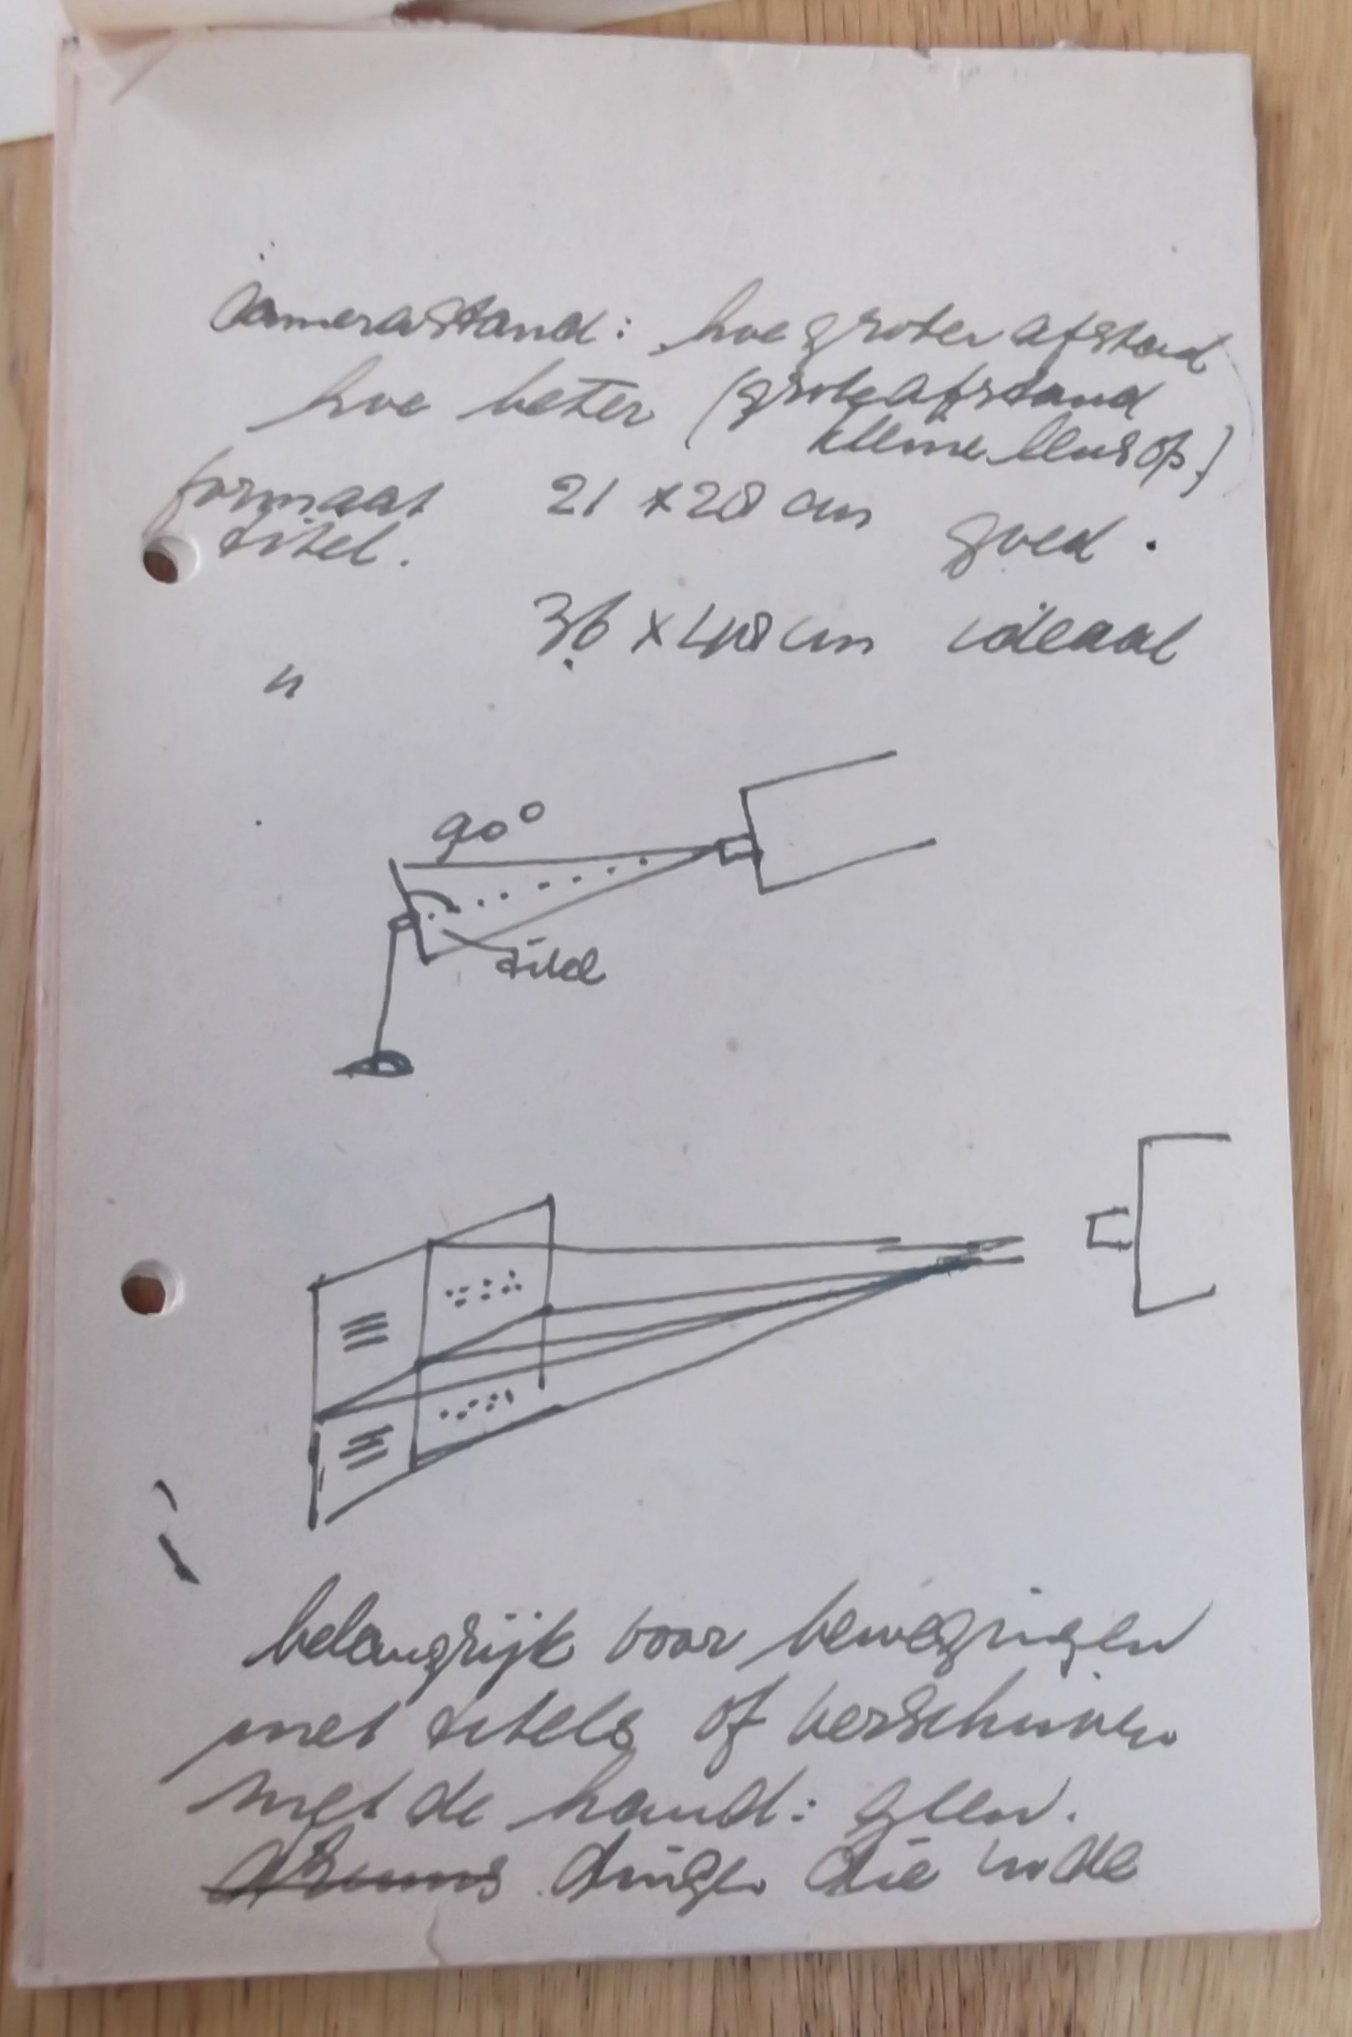 Camerastand: hoe groter afstand
hoe beter (grote afstand
kleine lensop.)
formaat 21 x 28 cm goed.
titel.
" 36 x 48 cm ideaal
90°
titel
belangrijk voor bewegingen
met titels of verschuiven
met de hand: geen
dingen die in de